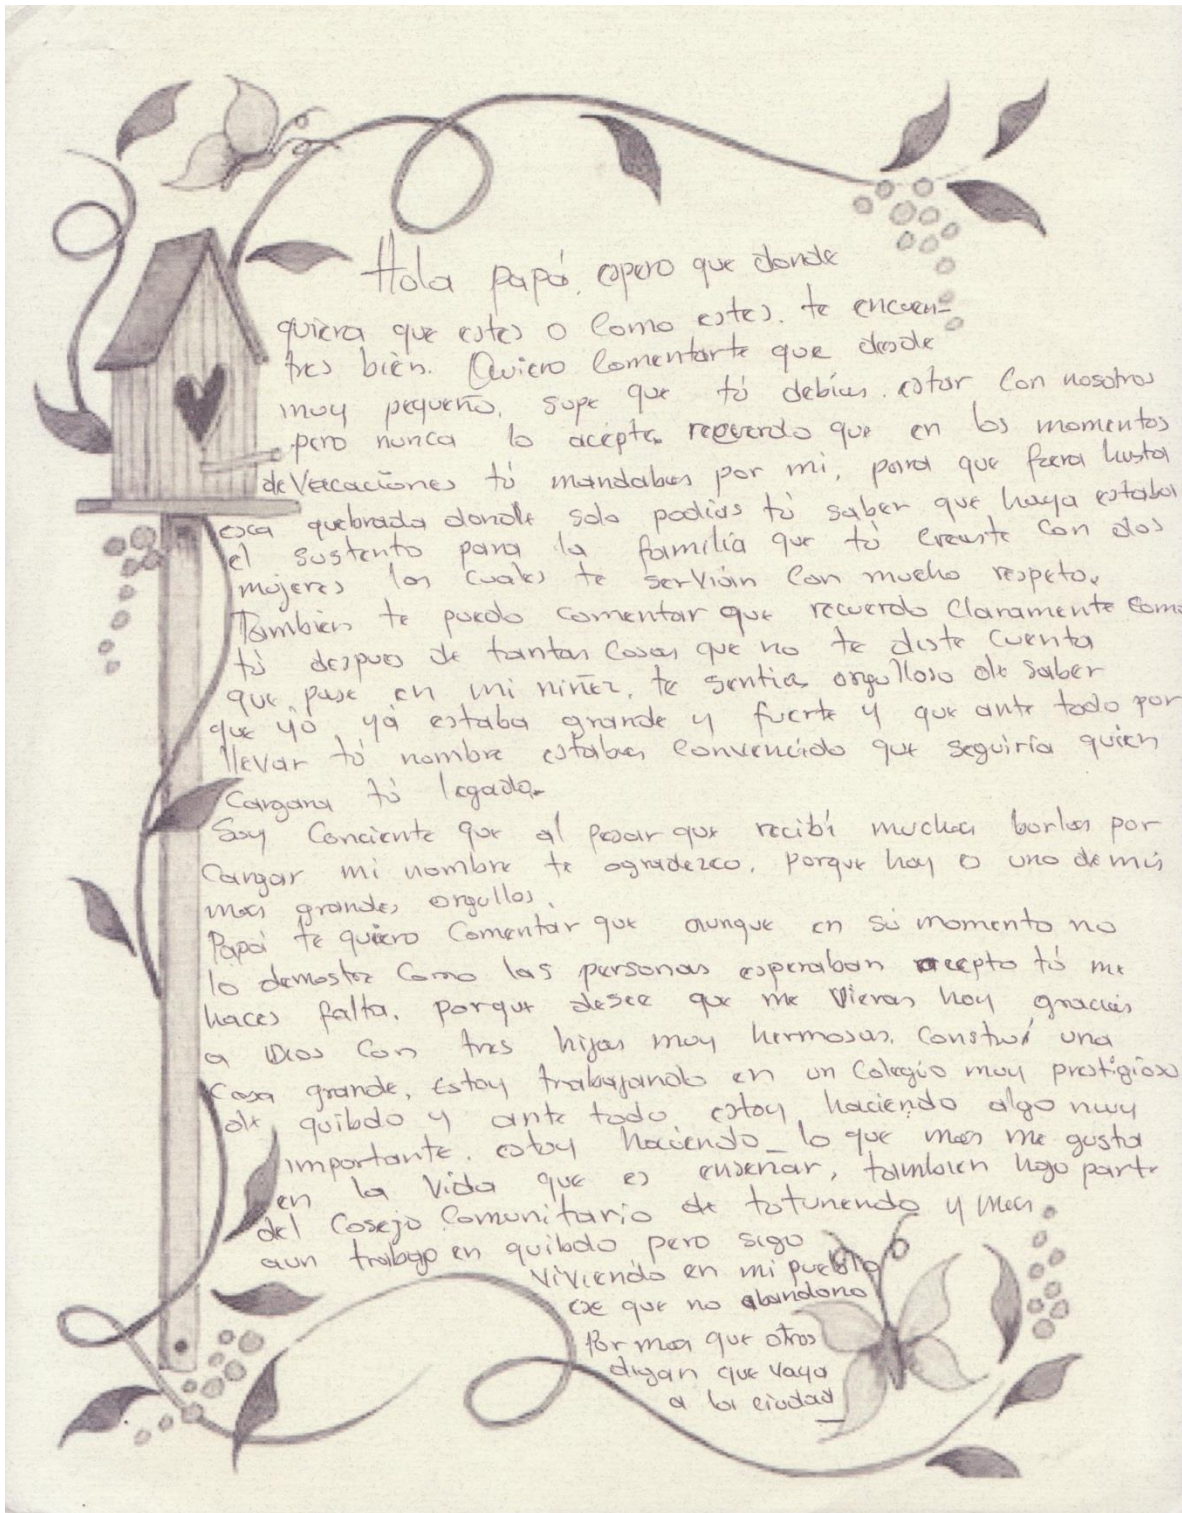 Hola papá, espero que donde
quiera que estes o como estes. te encuen-
tres bien. Quiero comentarte que desde
muy pequeño, supe que tú debias. estar con nosotros
pero nunca lo acepte. recuerdo que en los momentos
de Vacaciones tú mandabas por mi, para que fuera hasta
esa quebrada donde solo podias tú saber que haya estaba
el sustento para la familia que tú creaste con dos
mujeres las cuales te servián con mucho respeto.
Tambien te puedo comentar que recuerdo claramente como
tú despues de tantas cosas que no te diste cuenta
que pase en mi niñez, te sentias orgulloso de saber
que yó yá estaba grande y fuerte y que ante todo por
llevar tú nombre estabas convencido que seguiría quien
cargara tú legado.
Soy conciente que al pesar que recibí muchas burlas por
cargar mi nombre te agradezco, porque hoy es uno de mis
mas grandes orgullos.
Papá te quiero comentar que aunque en su momento no
lo demostre como las personas esperaban acepto tú me
haces falta, porque desee que me vieras hoy gracias
a Dios con tres hijas muy hermosas, construí una
casa grande, estoy trabajando en un colegio muy prestigioso
de quibdo y ante todo estoy haciendo algo muy
importante, estoy haciendo lo que mas me gusta
en la vida que es enseñar, tambien hago parte
del Cosejo Comunitario de totunendo y mas
aun trabajo en quibdo pero sigo
viviendo en mi pueblo
ese que no abandono
Por mas que otros
digan que vaya
a la ciudad